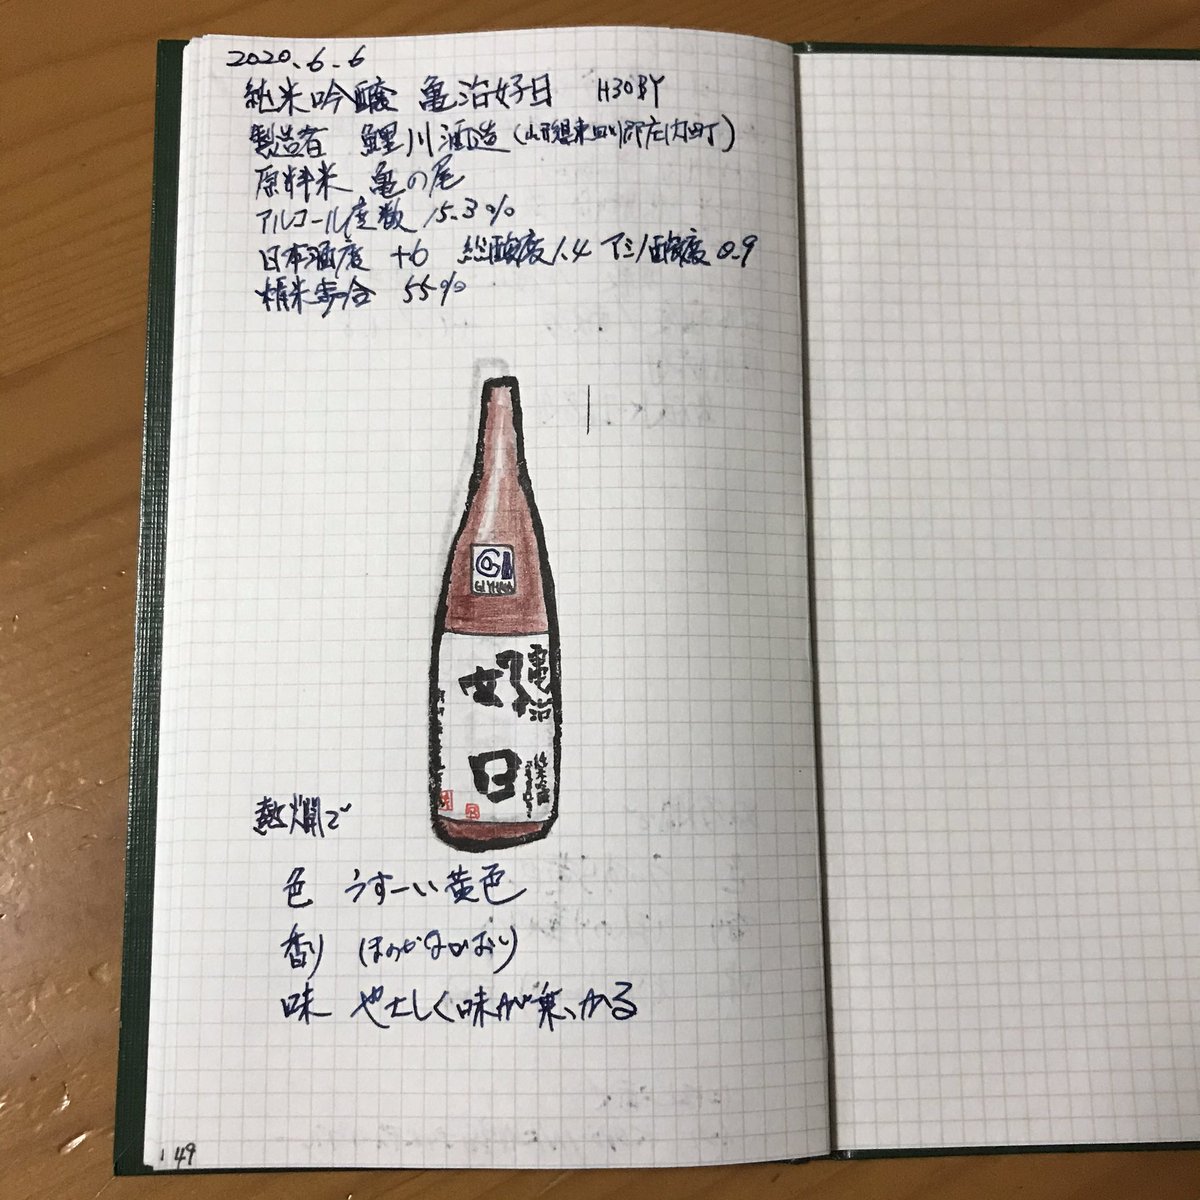 2020.6.6
純米吟醸 亀治好日 H30BY
製造者 鯉川酒造(山形県東田川郡庄内町)
原料米 亀の尾
アルコール度数 15.3%
日本酒度 +6 総酸度1.4 アミノ酸度0.9
精米歩合 55%
GI
亀治
好日
純米吟醸
熱燗で
色 うすーい黄色
香り ほのかなかおり
味 やさしく味が乗っかる
149